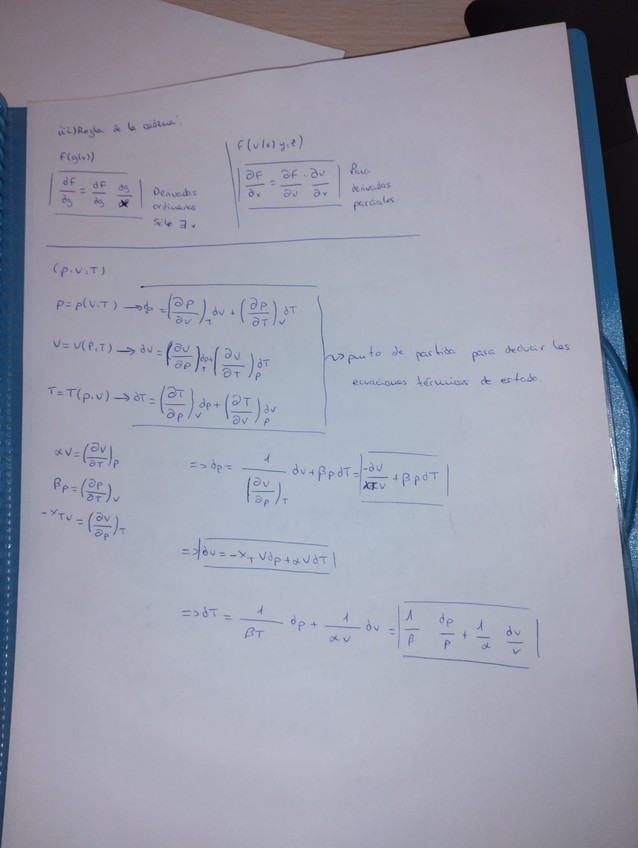 iii) Regla de la cadena:
f(g(x))
dF/dg = dF/dg dg/x
Derivadas
ordinarias
Sólo ∃ x
F(v(x) y,t)
∂F/∂x = ∂F/∂v · ∂v/∂x
Para
derivadas
parciales
(p,v,T)
P=p(v,T) → dp = (∂P/∂v)_T dv + (∂p/∂T)_v dT
V=v(P,T) → dv = (∂v/∂p)_T dp + (∂v/∂T)_p dT
T=T(p,v) → dT = (∂T/∂p)_v dp + (∂T/∂v)_p dv
~> punto de partida para deducir las
ecuaciones térmicas de estado.
αv = (∂v/∂T)_p
βp = (∂p/∂T)_v
-χ_T v = (∂v/∂p)_T
=> dp = 1/(∂v/∂p)_T dv + βp dT = -dv/χ_T v + βp dT
=> dv = -χ_T v dp + αv dT
=> dT = 1/βT dp + 1/αv dv = 1/β dp/p + 1/α dv/v